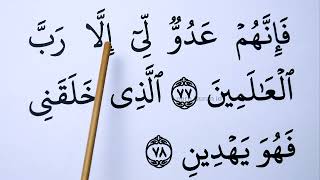 فَإِنَّهُمْ عَدُوٌّ لِّىٓ إِلَّا رَبَّ
ٱلْعَـٰلَمِينَ ٧٧ ٱلَّذِى خَلَقَنِى
فَهُوَ يَهْدِينِ ٧٨